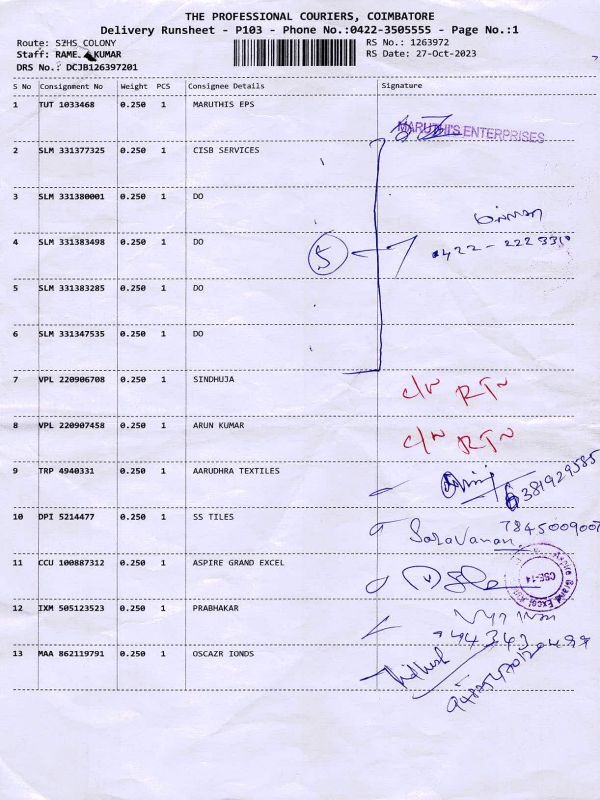 THE PROFESSIONAL COURIERS, COIMBATORE
Delivery Runsheet - P103 - Phone No.:0422-3505555 - Page No.:1
Route: SIHS COLONY
RS No.: 1263972
Staff: RAME KUMAR
RS Date: 27-Oct-2023
DRS No.: DCJB126397201
S No Consignment No Weight PCS Consignee Details Signature
1 TUT 1033468 0.250 1 MARUTHIS EPS
MARUTHI'S ENTERPRISES
2 SLM 331377325 0.250 1 CISB SERVICES
3 SLM 331380001 0.250 1 DO
4 SLM 331383498 0.250 1 DO
5
5 SLM 331383285 0.250 1 DO
6 SLM 331347535 0.250 1 DO
7 VPL 220906708 0.250 1 SINDHUJA
C/N RTN
8 VPL 220907458 0.250 1 ARUN KUMAR
C/N RTN
9 TRP 4940331 0.250 1 AARUDHRA TEXTILES
6381929585
10 DPI 5214477 0.250 1 SS TILES
Saravanan 7845009007
11 CCU 100887312 0.250 1 ASPIRE GRAND EXCEL
CBE-14
12 IXM 505123523 0.250 1 PRABHAKAR
13 MAA 862119791 0.250 1 OSCAZR IONDS